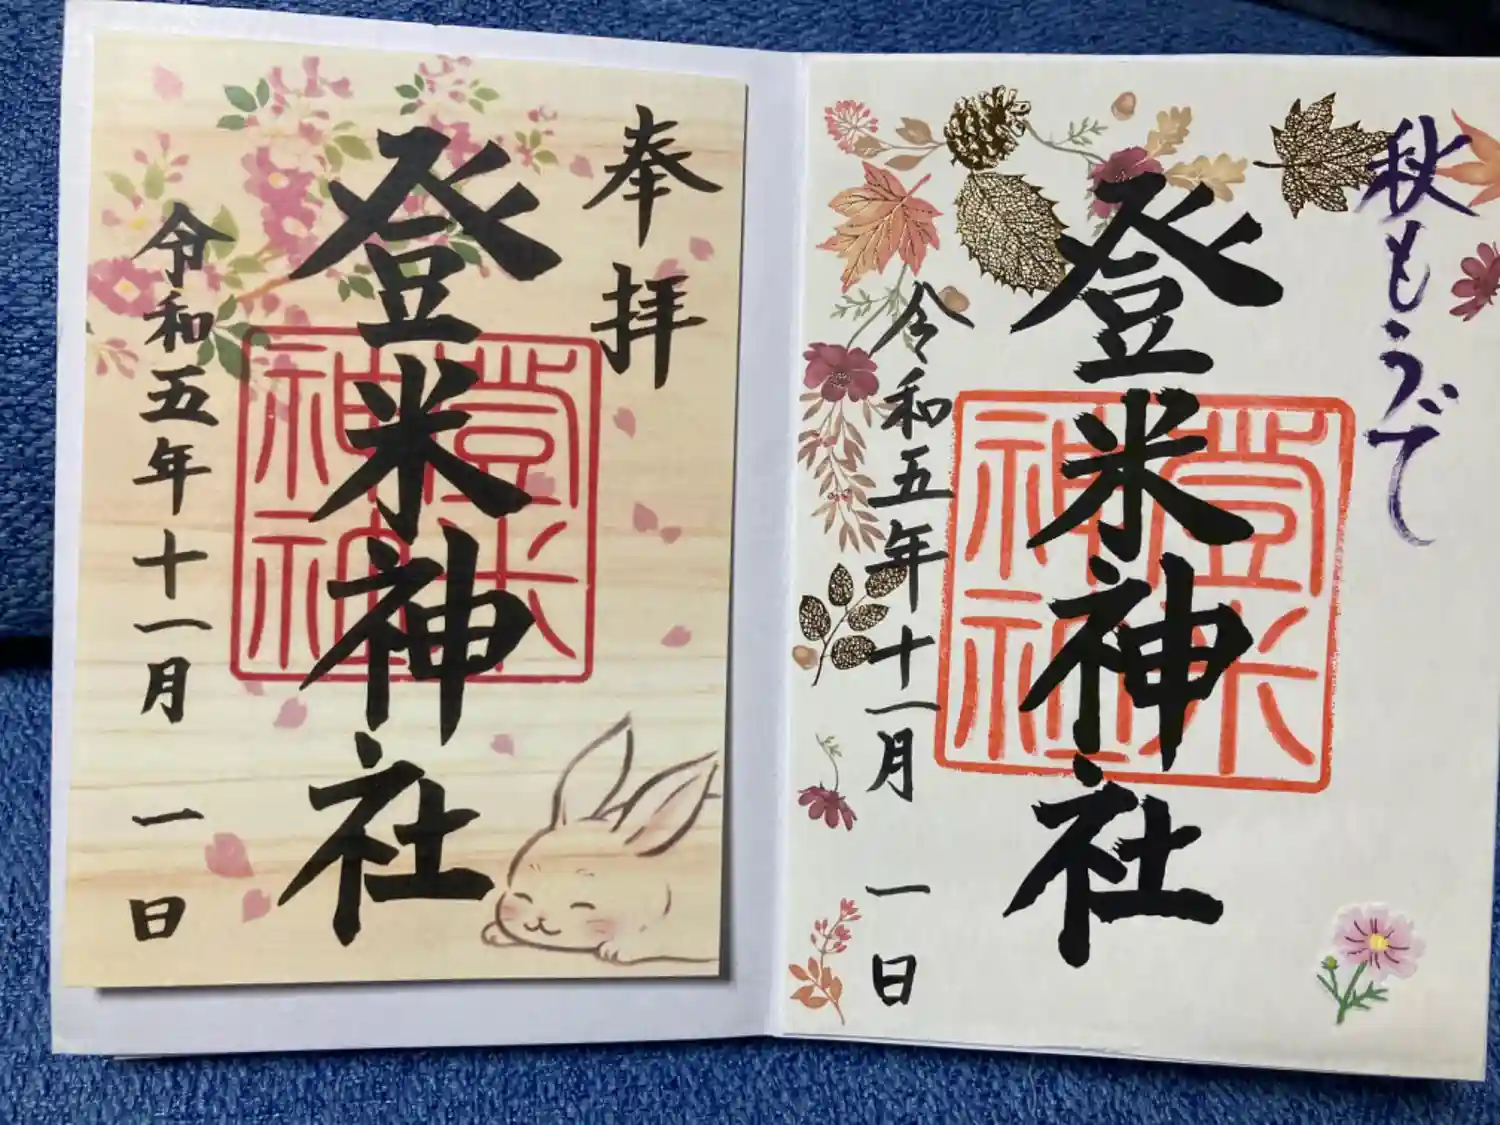 奉拝
登米神社
登米神社
令和五年十一月一日
秋もうで
登米神社
登米神社
令和五年十一月一日